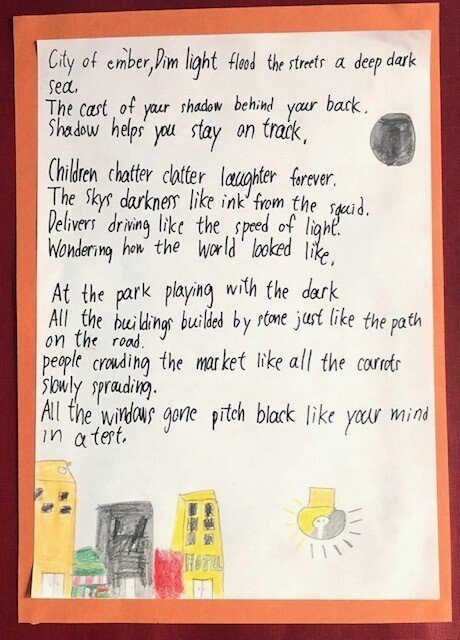 City of ember, Dim light flood the streets a deep dark
sea.
The cast of your shadow behind your back.
Shadow helps you stay on track.
Children chatter clatter laughter forever.
The skys darkness like ink from the squid.
Delivers driving like the speed of light.
Wondering how the world looked like.
At the park playing with the dark
All the buildings builded by stone just like the path
on the road.
people crowding the market like all the carrots
slowly sprauding.
All the windows gone pitch black like your mind
in a test.
HOTEL